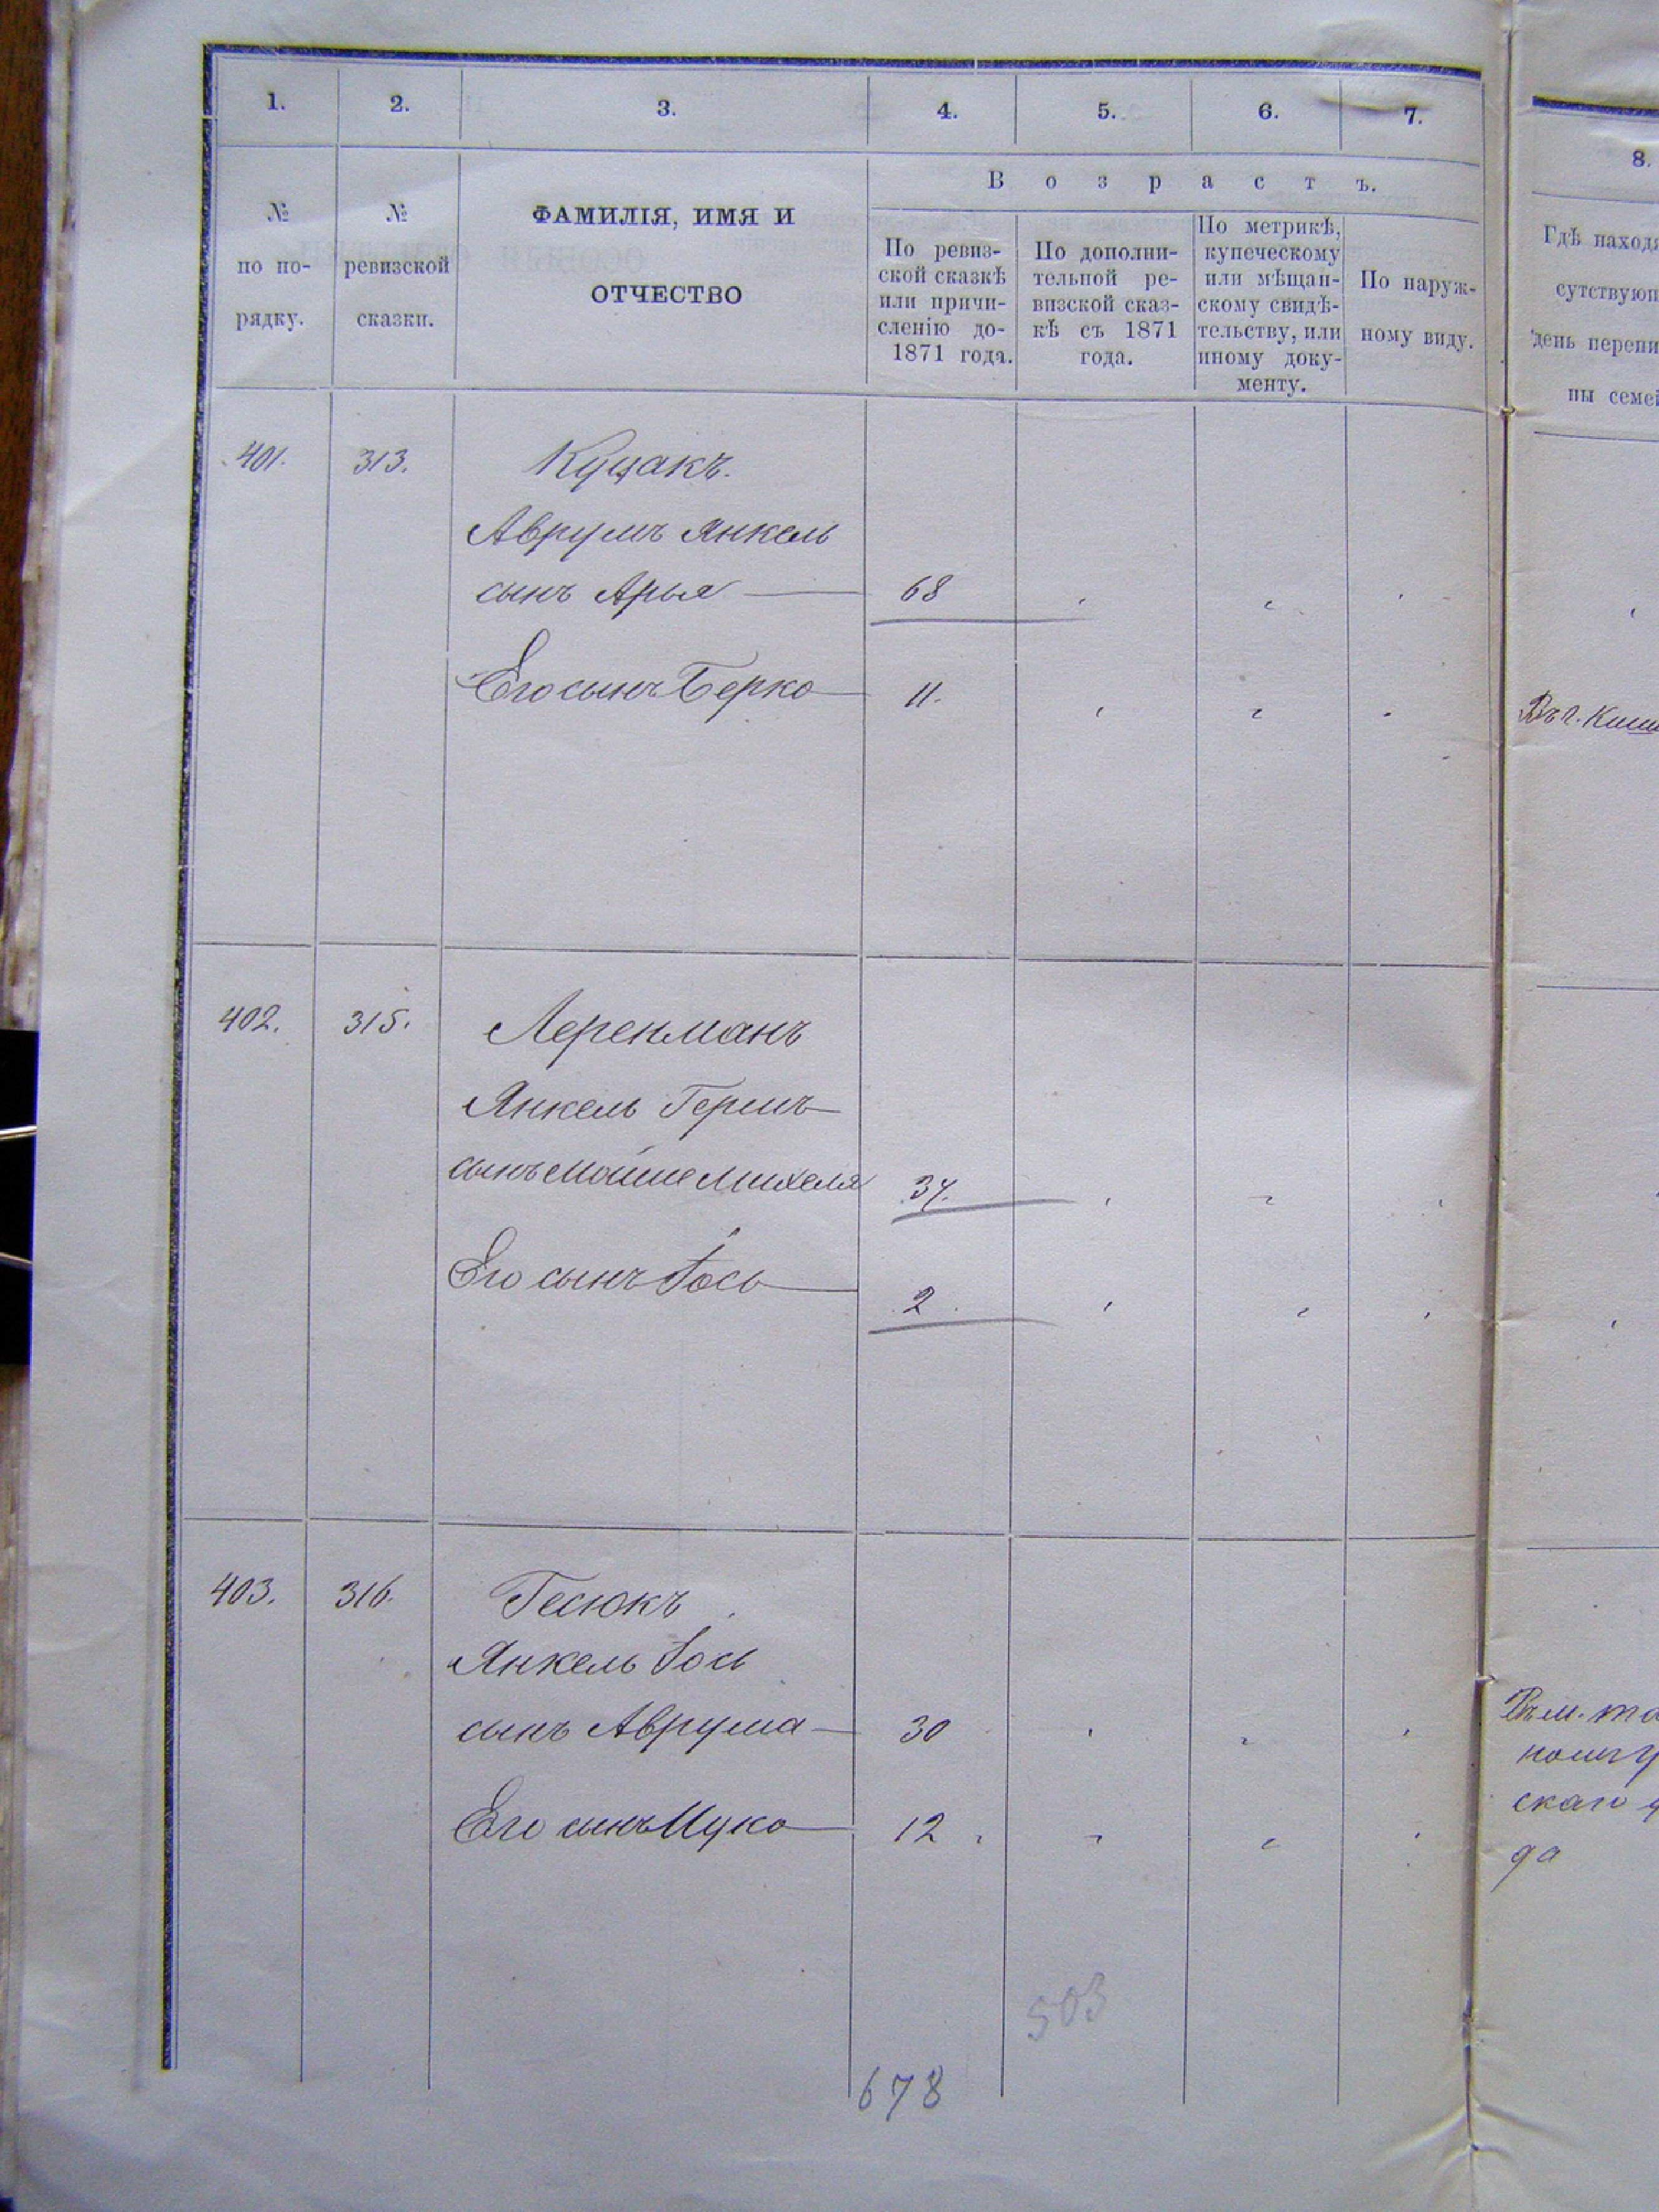 1. 2. 3. 4. 5. 6. 7.
8.
№ по по- рядку.
№ ревизской сказки.
ФАМИЛІЯ, ИМЯ И
ОТЧЕСТВО
Возрастъ.
По ревиз-
ской сказкѣ
или причи-
сленію до-
1871 года.
По дополни-
тельной ре-
визской сказ-
кѣ съ 1871
года.
По метрикѣ,
купеческому
или мѣщан-
скому свидѣ-
тельству, или
иному доку-
менту.
По наруж-
ному виду.
Гдѣ наход
сутствующ
день перепи
ны семе
401. 313. Куцакъ.
Аврумъ Янкель
сынъ Арья 68
Его сынъ Берко 11.
Въ г. Киши
402. 315. Леренманъ
Янкель Гершъ
сынъ Мойше Михеля 34.
Его сынъ Іось 2.
403. 316. Гесюкъ
Янкель Іось
сынъ Аврума 30
Его сынъ Цуко 12
Въ м.
скаго у
да
503
678